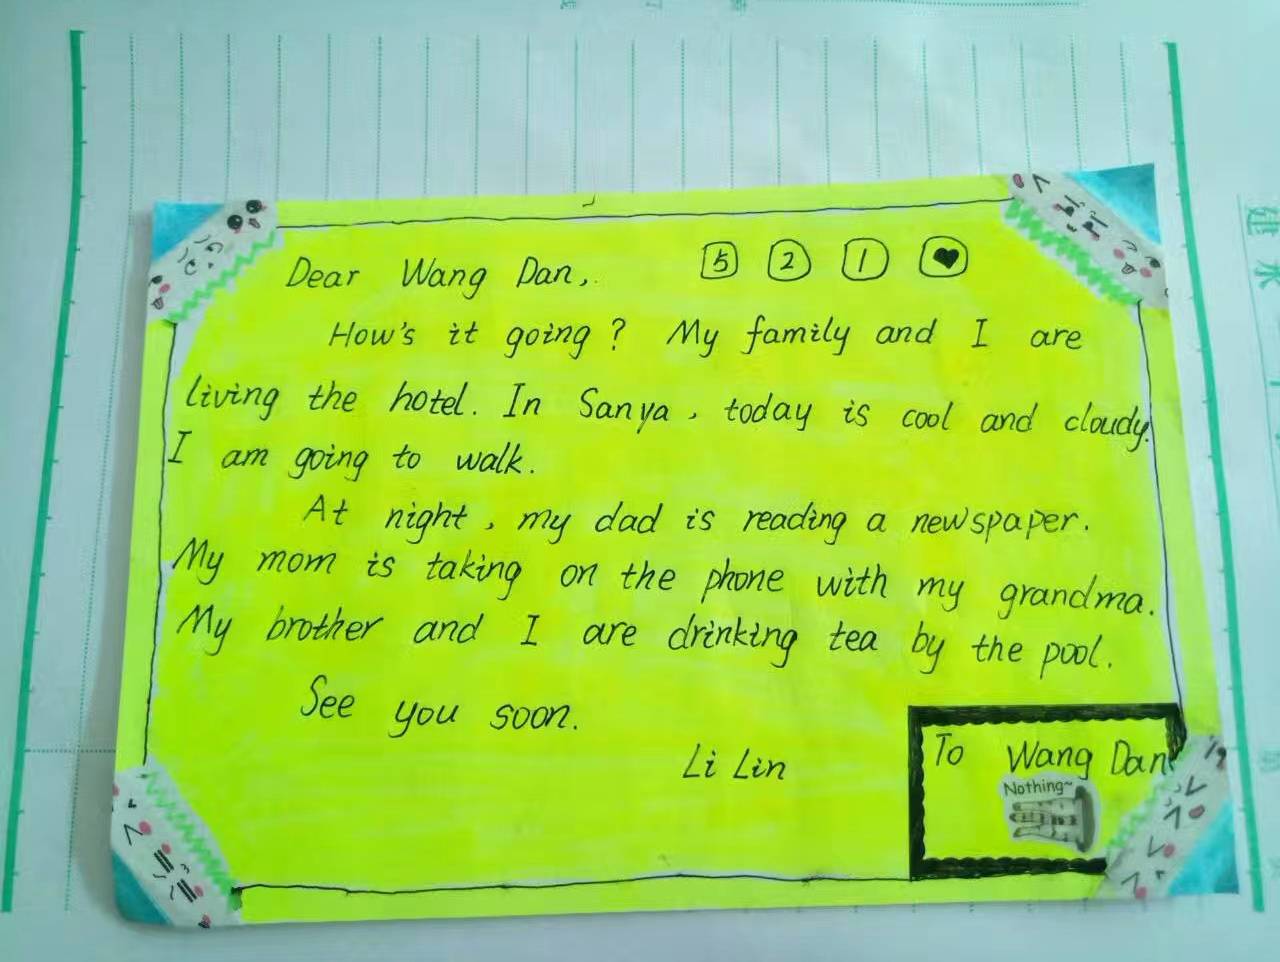 Dear Wang Dan,
5 2 1
How's it going? My family and I are
living the hotel. In Sanya, today is cool and cloudy.
I am going to walk.
At night, my dad is reading a newspaper.
My mom is taking on the phone with my grandma.
My brother and I are drinking tea by the pool.
See you soon.
Li Lin
To Wang Dan
Nothing~